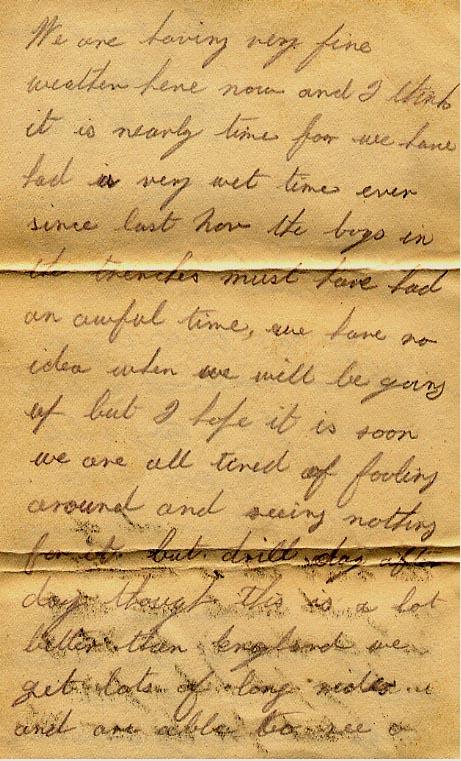 We are having very fine
weather here now and I think
it is nearly time for we have
had a very wet time ever
since last Nov the boys in
the trenches must have had
an awful time, we have no
idea when we will be going
up but I hope it is soon
we are all tired of fooling
around and seeing nothing
for it but drill day after
day though this is a lot
better than England we
get lots of long rides
and are able to see a